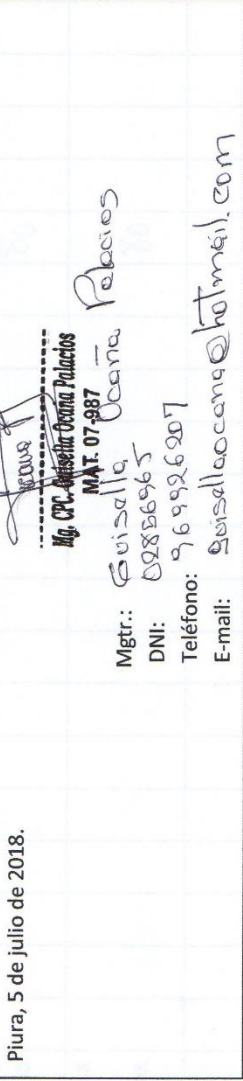 Piura, 5 de julio de 2018.
Mg. CPC. Guisella Ocana Palacios
MAT. 07-987
Mgtr.: Guisella Ocaña Palacios
DNI: 02886965
Teléfono: 969926207
E-mail: guisellaocana@hotmail.com